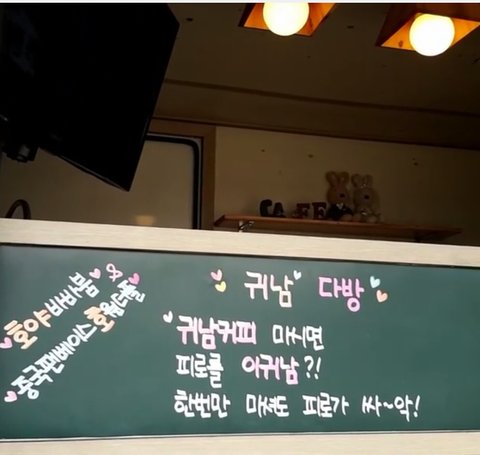 CAFE
귀남 다방
귀남커피 마시면
피로를 이귀남?!
한번만 마셔도 피로가 싸~악!
호야비비붐
중국팬베이스 호월드